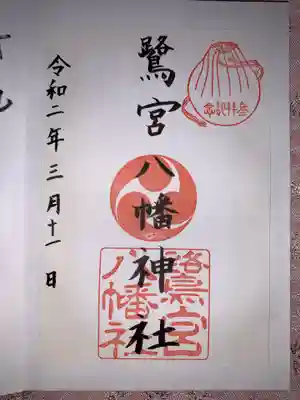 参拝記念
鷺宮八幡神社
鷺宮八幡社
令和二年三月十一日